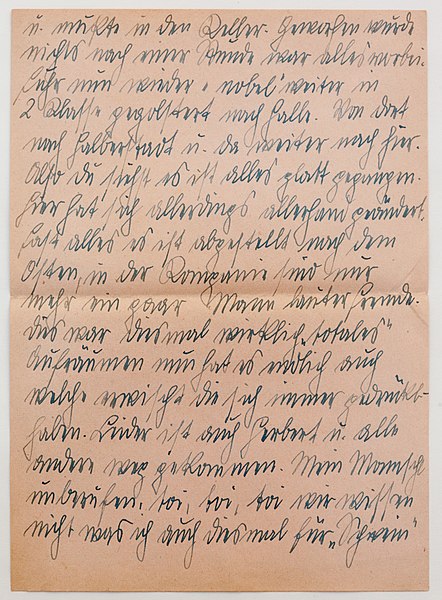 u. mußte in den Keller. Geworfen wurde
nichts nach einer Stunde war alles vorbei.
Fuhr nun wieder „nobel“ weiter in
2 Klasse gepolstert nach Halle. Von dort
nach Halberstadt u. da weiter nach hier.
Also du siehst es ist alles glatt gegangen.
Hier hat sich allerdings allerhand geändert.
Fast alles es ist abgestellt nach dem
Osten, in der Kompanie sind nur
mehr ein paar Mann lauter Fremde.
Dies war diesmal wirklich „totales“
Aufräumen nun hat es endlich auch
welche erwischt die sich immer gedrückt
haben. Leider ist auch Herbert u. alle
andere weg gekommen. Mein
unberufen, toi, toi, toi wir wissen
nicht was ich auch diesmal für „Schwein“